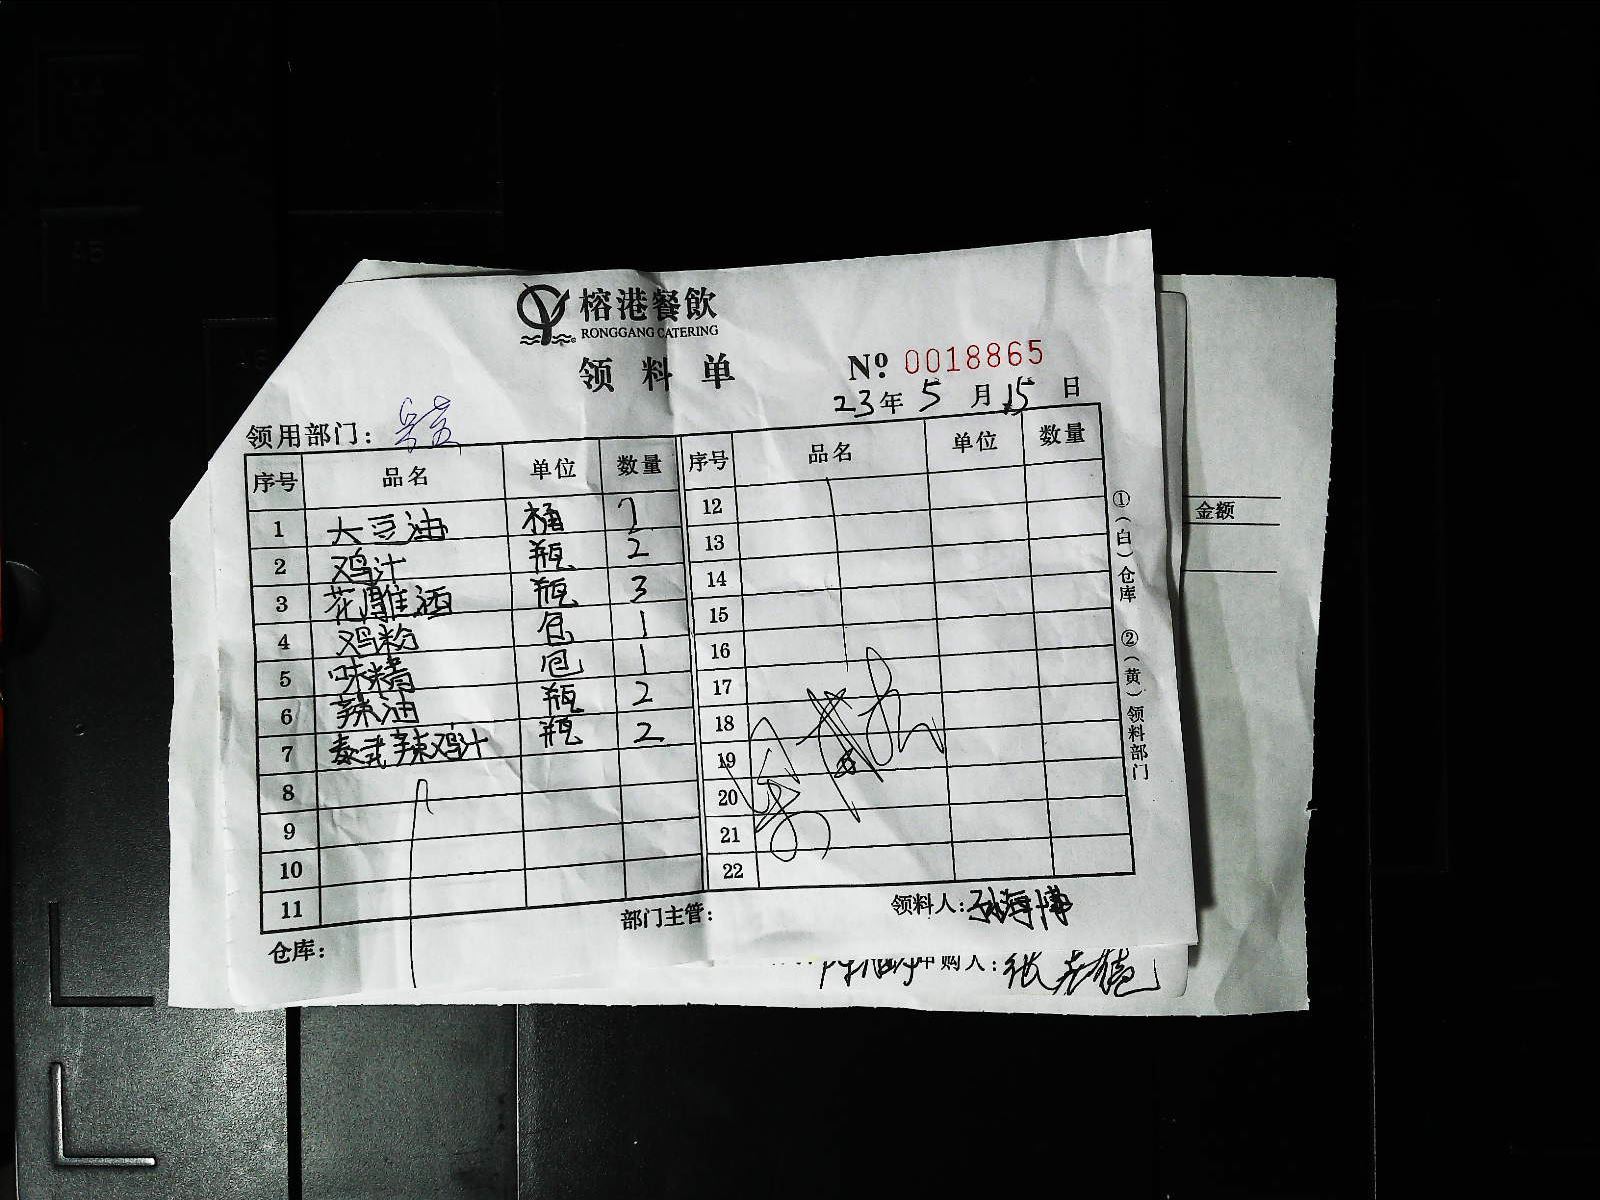 榕港餐飲
RONGGANG CATERING
领料单
Nº 0018865
23年5月15日
领用部门：
序号 品名 单位 数量 序号 品名 单位 数量
1 大豆油 桶 1 12
2 鸡汁 瓶 2 13
3 花雕酒 瓶 3 14
4 鸡粉 包 1 15
5 味精 包 1 16
6 辣油 瓶 2 17
7 泰式辣鸡汁 瓶 2 18
8 19
9 20
10 21
11 22
仓库： 部门主管： 领料人：孙海博
①（白）仓库 ②（黄）领料部门
金额
申购人：张